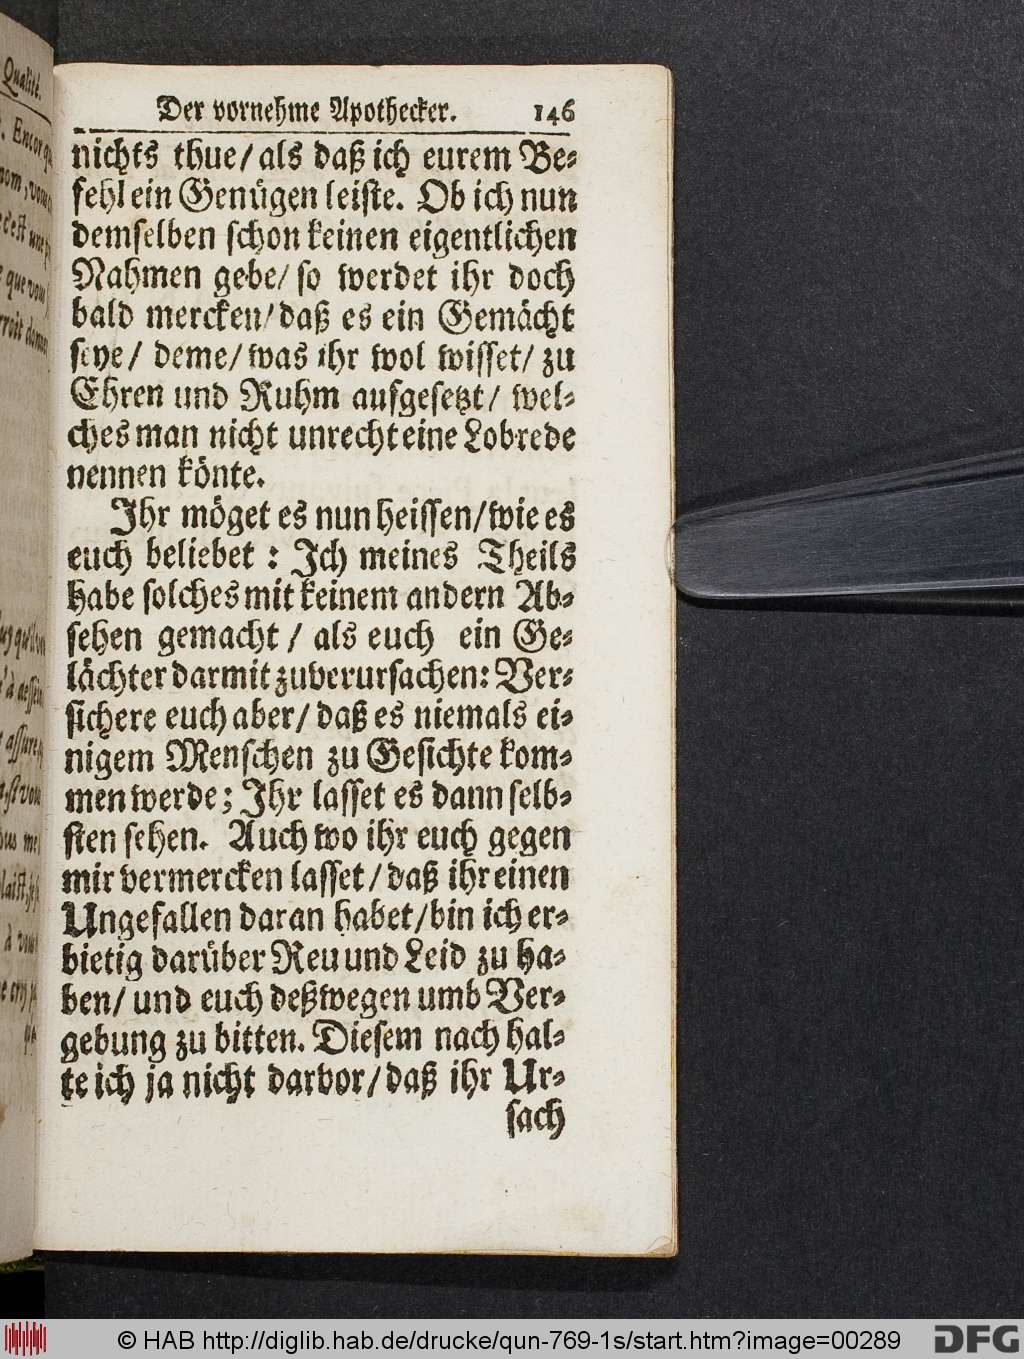 Der vornehme Apothecker. 146
nichts thue/ als daß ich eurem Be-
fehl ein Genügen leiste. Ob ich nun
demselben schon keinen eigentlichen
Nahmen gebe/ so werdet ihr doch
bald mercken/ daß es ein Gemächt
seye/ deme/ was ihr wol wisset/ zu
Ehren und Ruhm aufgesetzt/ wel-
ches man nicht unrecht eine Lobrede
nennen könte.
Ihr möget es nun heissen/ wie es
euch beliebet: Ich meines Theils
habe solches mit keinem andern Ab-
sehen gemacht/ als euch ein Ge-
lächter darmit zuverursachen: Ver-
sichere euch aber/ daß es niemals ei-
nigem Menschen zu Gesichte kom-
men werde; Ihr lasset es dann selb-
sten sehen. Auch wo ihr euch gegen
mir vermercken lasset/ daß ihr einen
Ungefallen daran habet/ bin ich er-
bietig darüber Reu und Leid zu ha-
ben/ und euch deßwegen umb Ver-
gebung zu bitten. Diesem nach hal-
te ich ja nicht darvor/ daß ihr Ur-
sach
Qualité.
Encor
que vous
© HAB http://diglib.hab.de/drucke/qun-769-1s/start.htm?image=00289
DFG